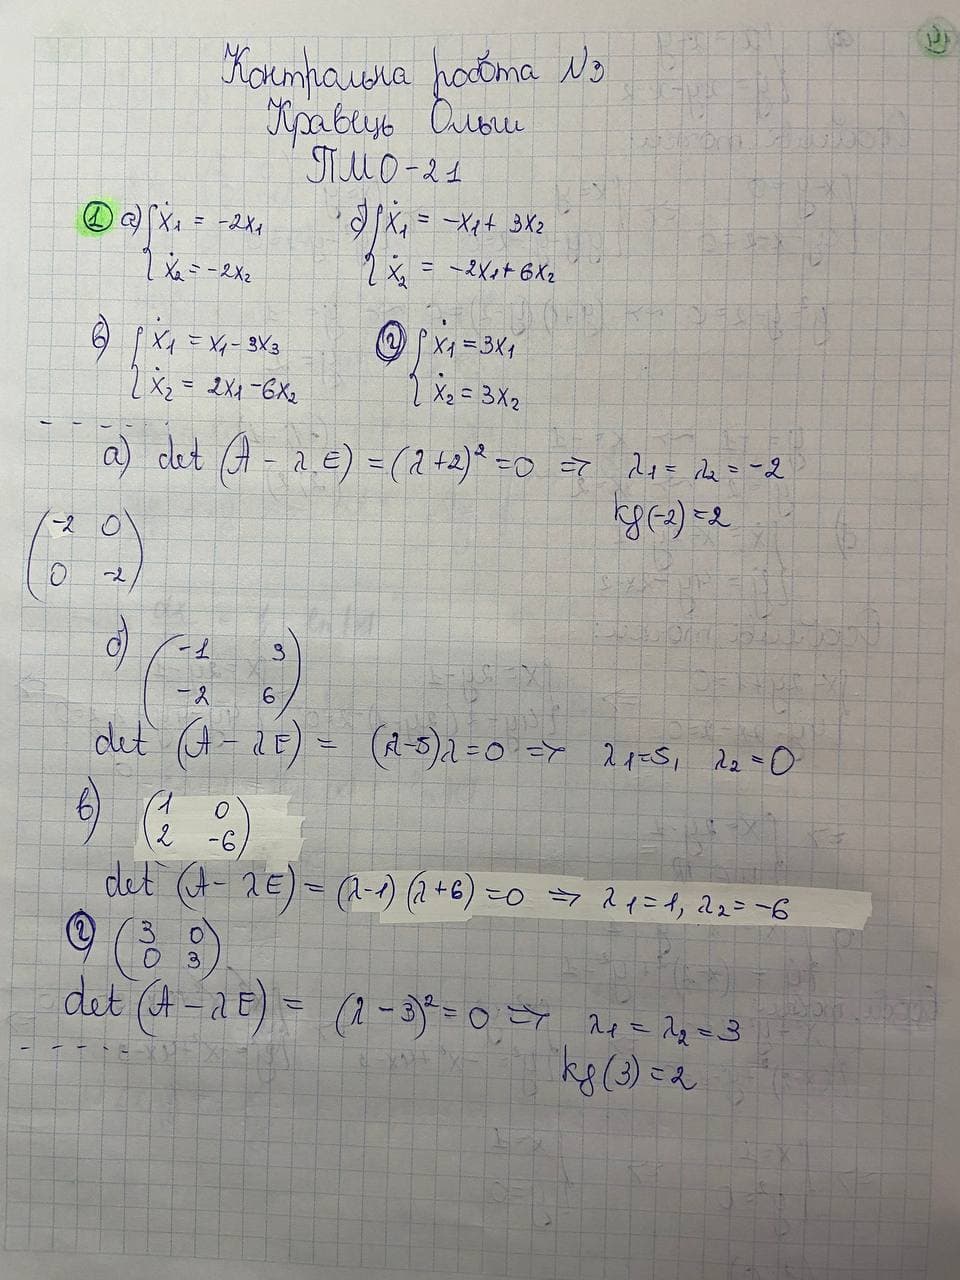 Контрольна робота №3
Кравець Ольги
ПМО-21
1 а) { ẋ1 = -2x1   б) { ẋ1 = -x1 + 3x2
ẋ2 = -2x2   ẋ2 = -2x1 + 6x2
в) { ẋ1 = x1 - 3x3   г) { ẋ1 = 3x1
ẋ2 = 2x1 - 6x2   ẋ2 = 3x2
а) det (A - λE) = (λ+2)² = 0 => λ1 = λ2 = -2
kg(-2) = 2
-2 0
0 -2
б) -1 3
-2 6
det (A - λE) = (λ-5)λ = 0 => λ1 = 5, λ2 = 0
в) 1 0
2 -6
det (A - λE) = (λ-1)(λ+6) = 0 => λ1 = 1, λ2 = -6
г) 3 0
0 3
det (A - λE) = (λ-3)² = 0 => λ1 = λ2 = 3
kg(3) = 2